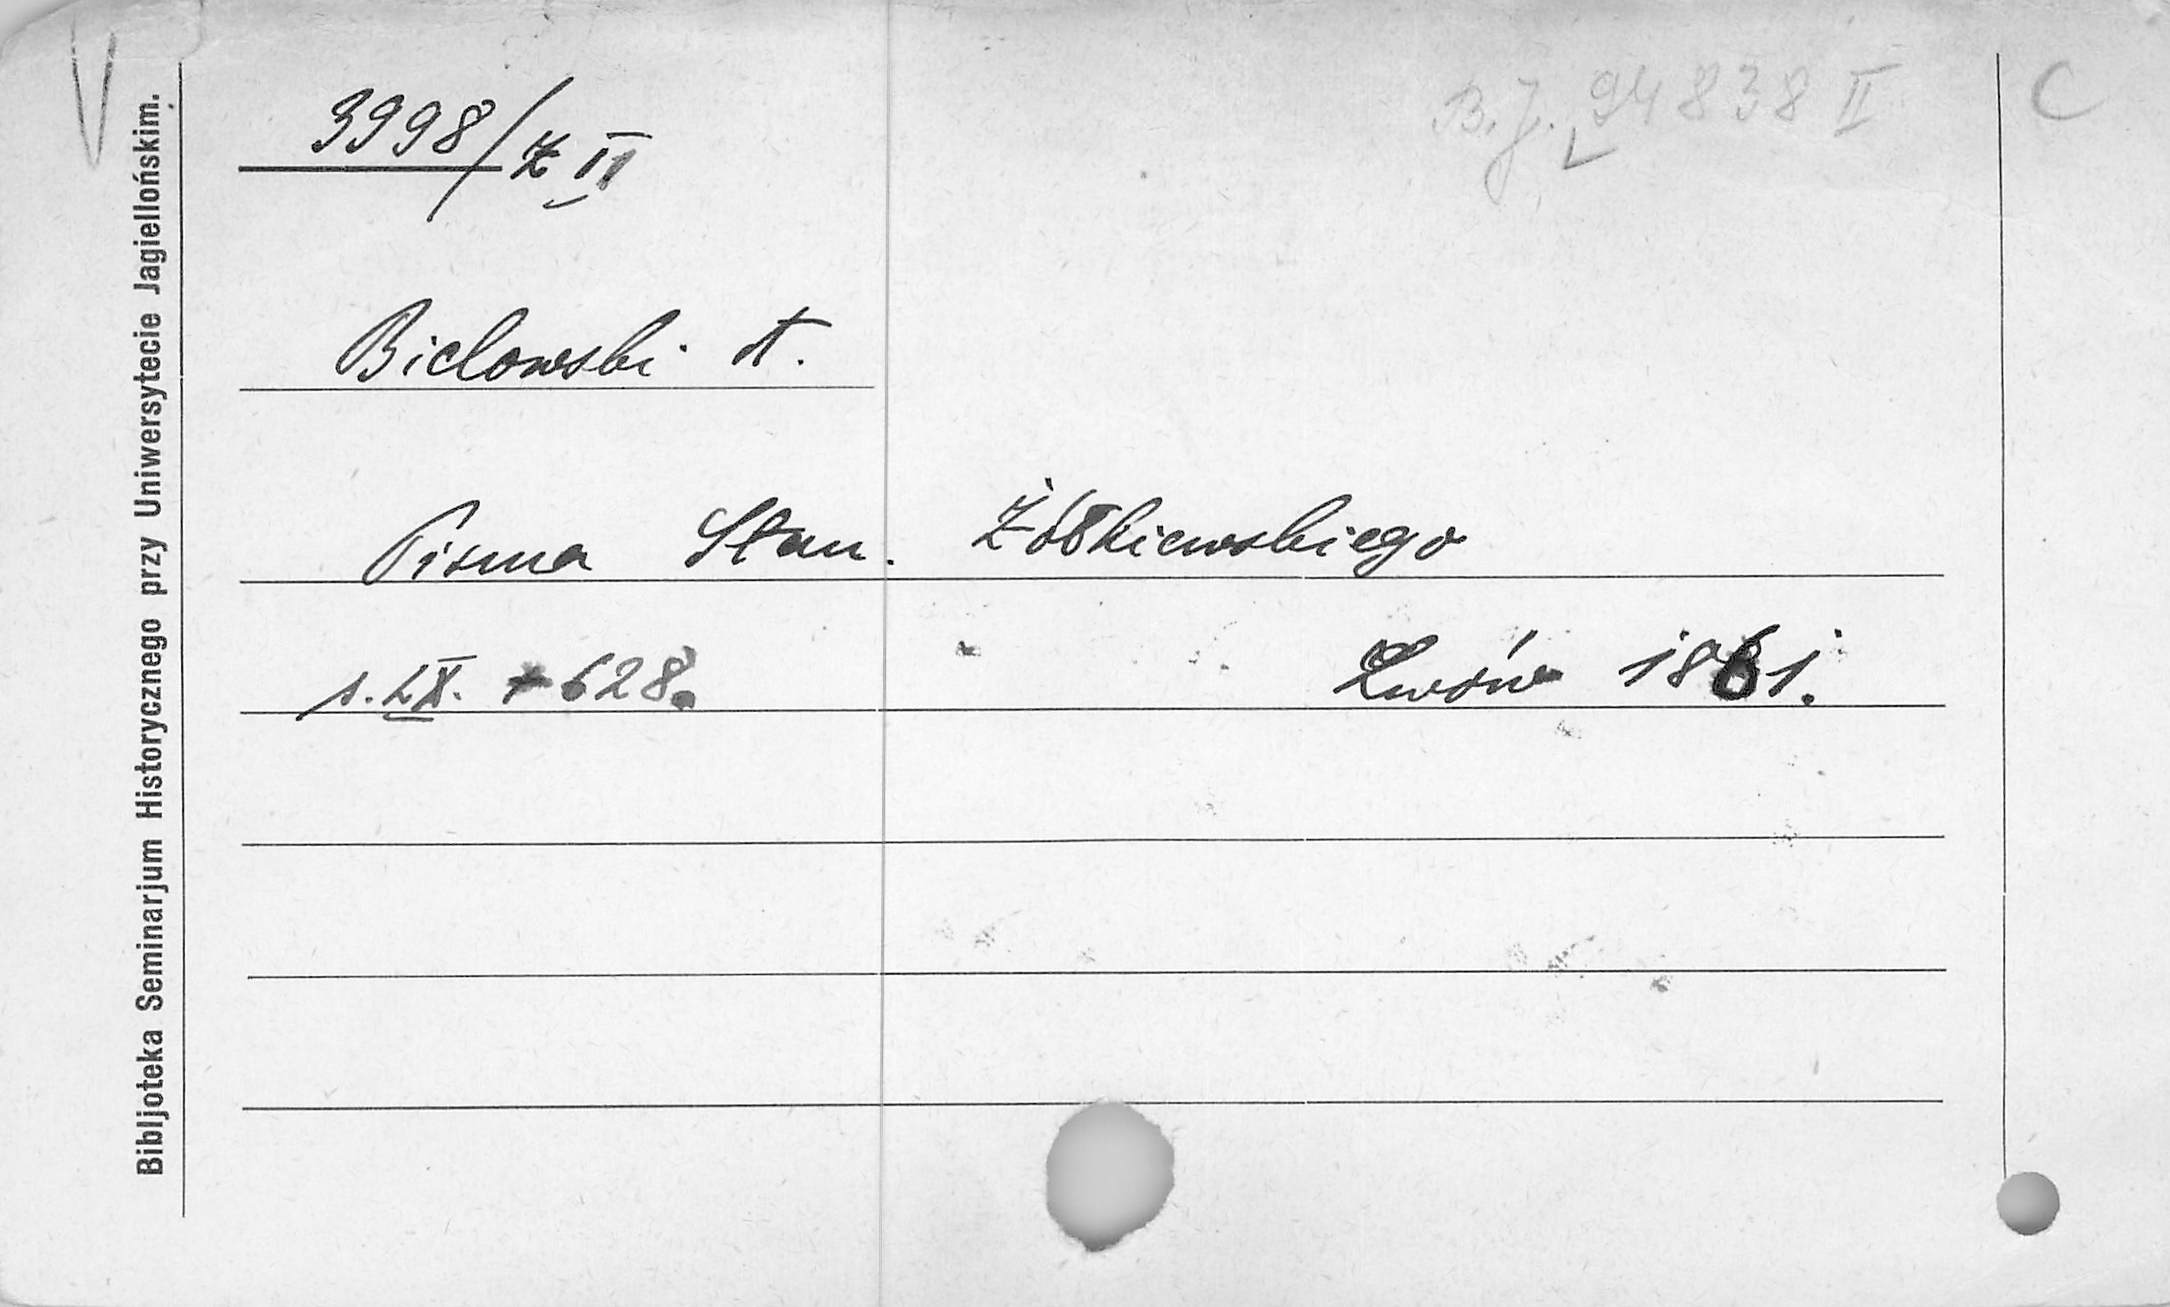 V
3998/Z II
B.J. 94838 II
C
Bielowski A.
Pisma Stan. Żółkiewskiego
s. LX. + 628.
Lwów 1861.
Bibljoteka Seminarjum Historycznego przy Uniwersytecie Jagiellońskim.